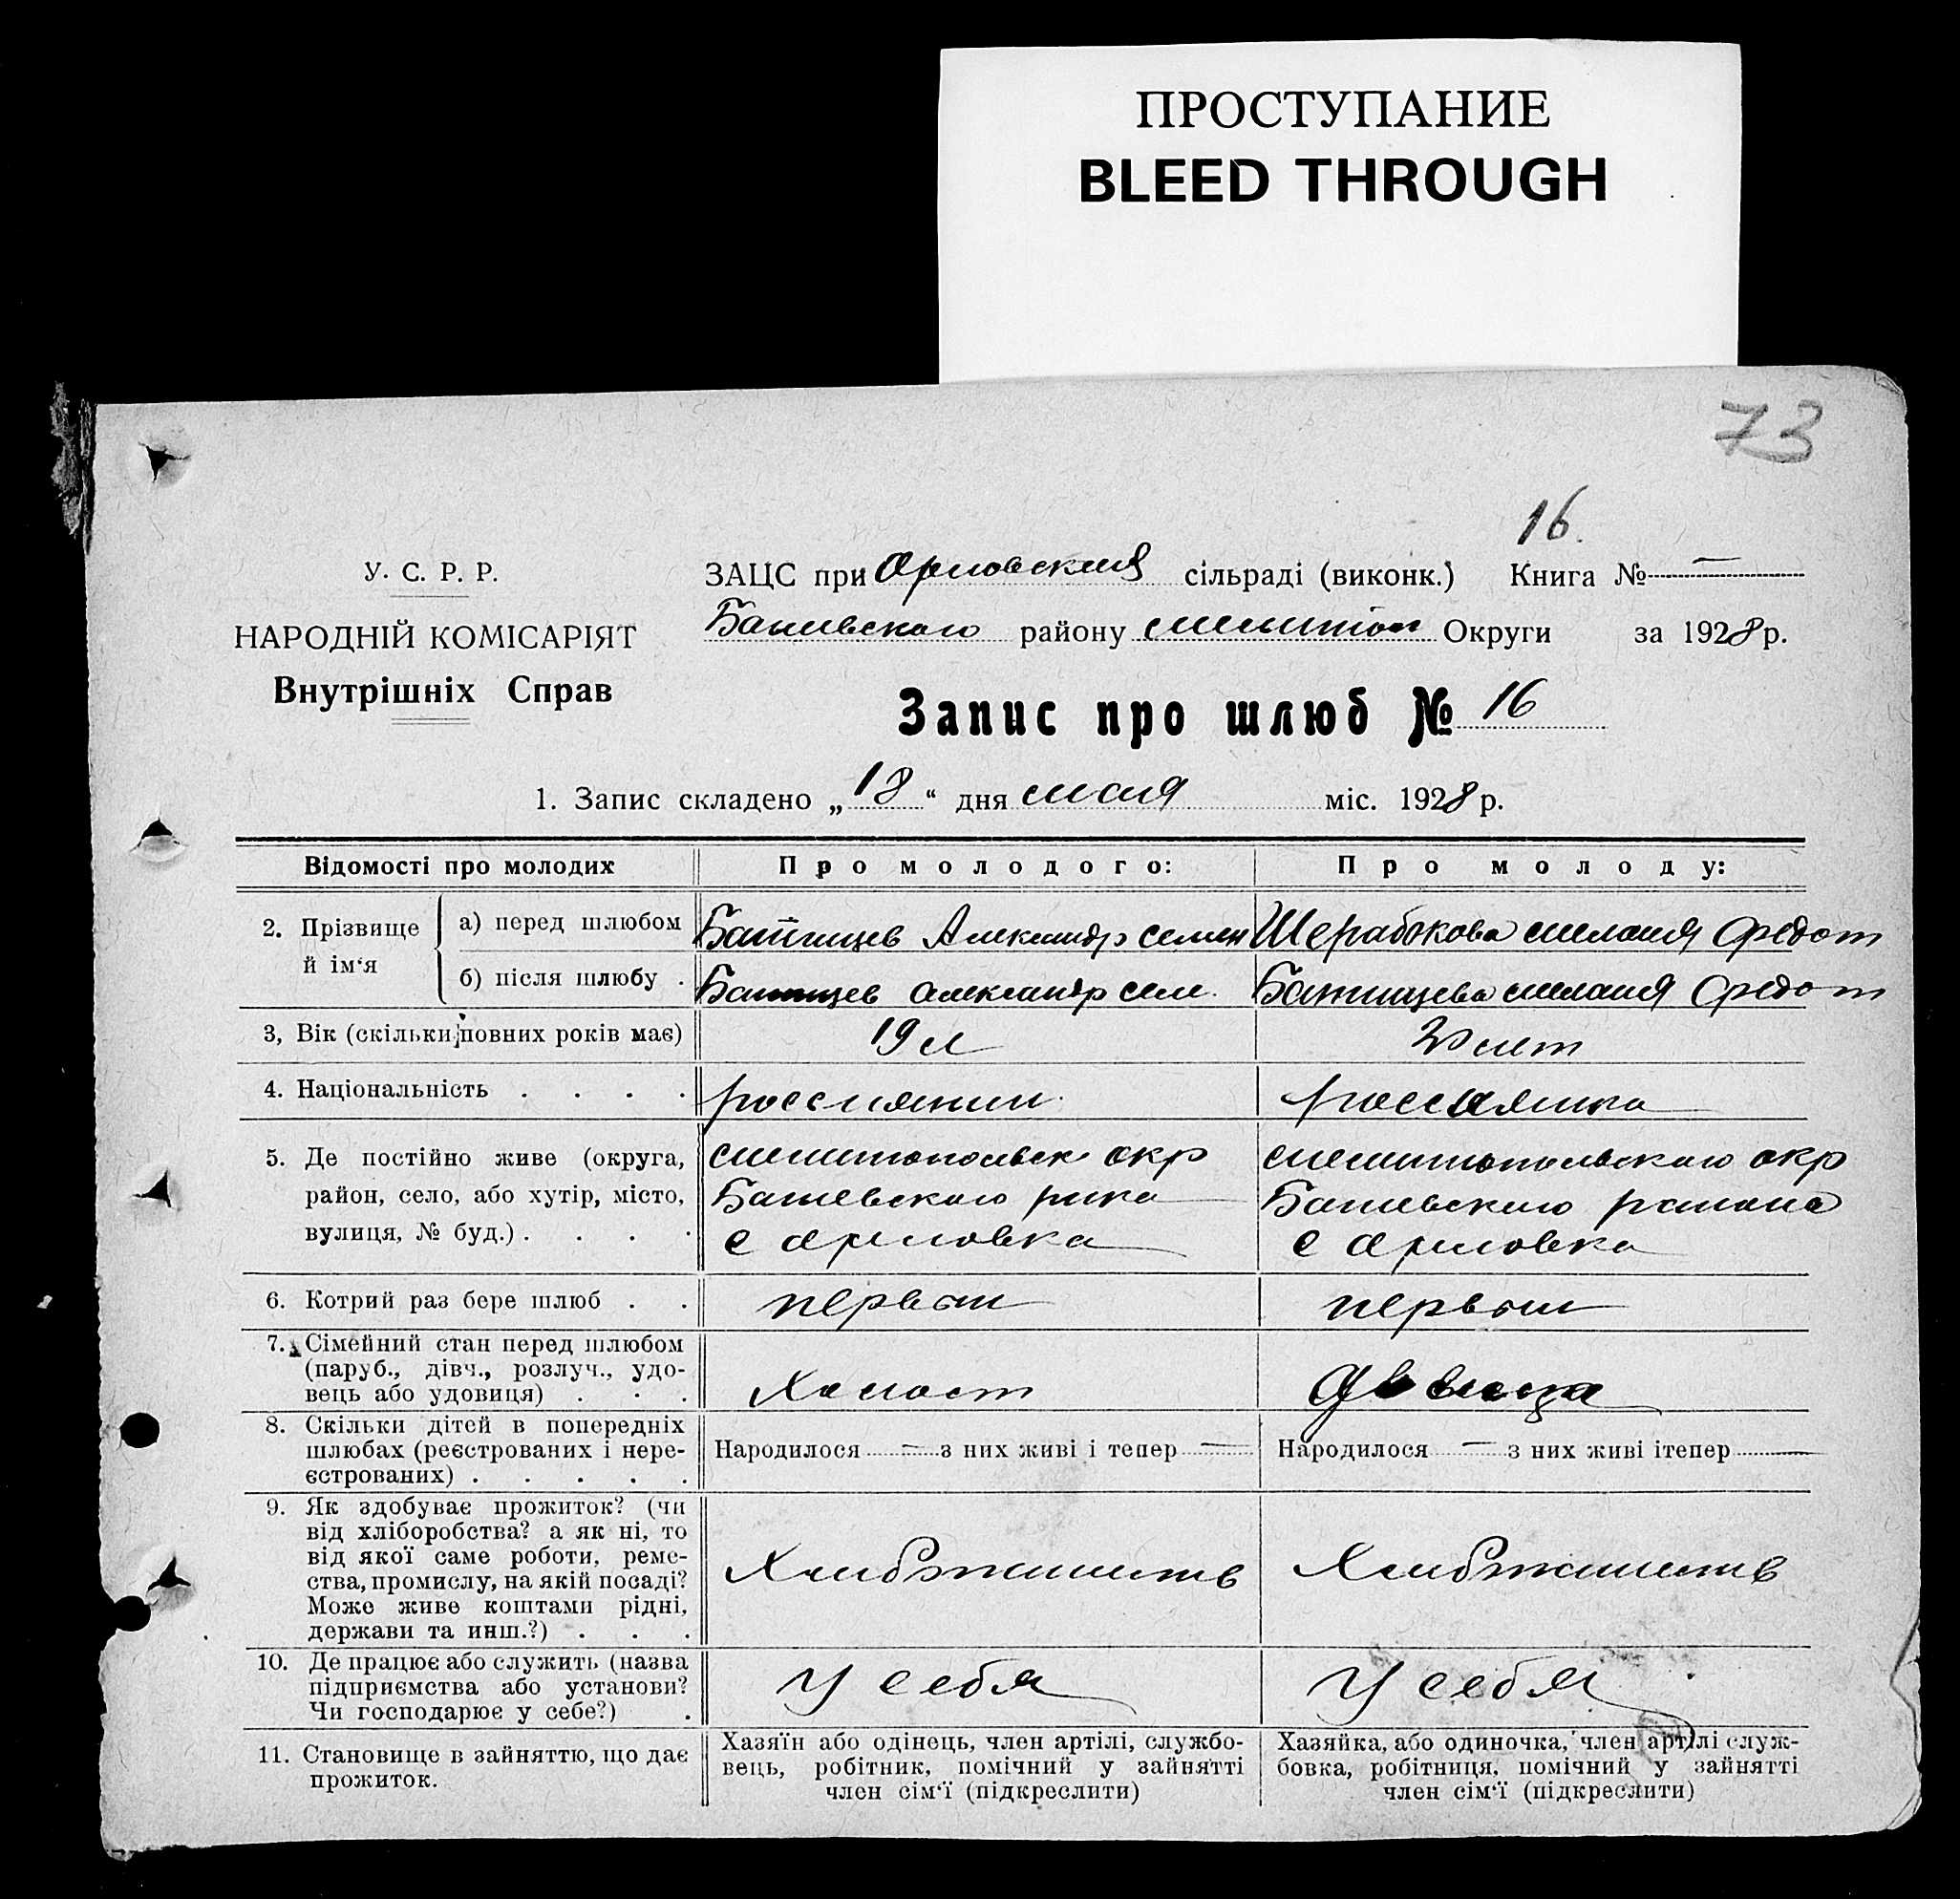 ПРОСТУПАНИЕ
BLEED THROUGH
73
16.
У. С. Р. Р.
НАРОДНІЙ КОМІСАРІЯТ
Внутрішніх Справ
ЗАЦС при Орловский сільраді (виконк.) Книга № —
района Округи за 1928 р.
Запис про шлюб № 16
1. Запис складено „ 18 “ дня мая міс. 1928 р.
Відомості про молодих Про молодого: Про молоду:
2. Прізвище й ім‘я
а) перед шлюбом Батищев Александр Семен Мелания Федот
б) після шлюбу . Батищев Александр Сем. Батищева Мелания Федот
3, Вік (скільки повних років має) 19 л 20 лет
4. Національність . . . . россиянин россиянка
5. Де постійно живе (округа, район, село, або хутір, місто, вулиця, № буд.) . . . .
Мелитопольск окр
рика
с Орловка
Мелитопольского окр
района
с Орловка
6. Котрий раз бере шлюб . . первый первый
7. Сімейний стан перед шлюбом (паруб., дівч., розлуч., удовець або удовиця) . . . Холост Девица
8. Скільки дітей в попередніх шлюбах (реєстрованих і нереєстрованих) . . . . .
Народилося — з них живі і тепер —
Народилося — з них живі ітепер —
9. Як здобуває прожиток? (чи від хліборобства? а як ні, то від якої саме роботи, ремества, промислу, на якій посаді? Може живе коштами рідні, держави та инш.?) . . .
10. Де працює або служить (назва підприємства або установи? Чи господарює у себе?) .
У себя У себя
11. Становище в зайняттю, що дає прожиток.
Хазяїн або одінець, член артілі, службовець, робітник, помічний у зайнятті член сім‘ї (підкреслити)
Хазяйка, або одиночка, член артілі службовка, робітниця, помічний у зайнятті член сім‘ї (підкреслити)